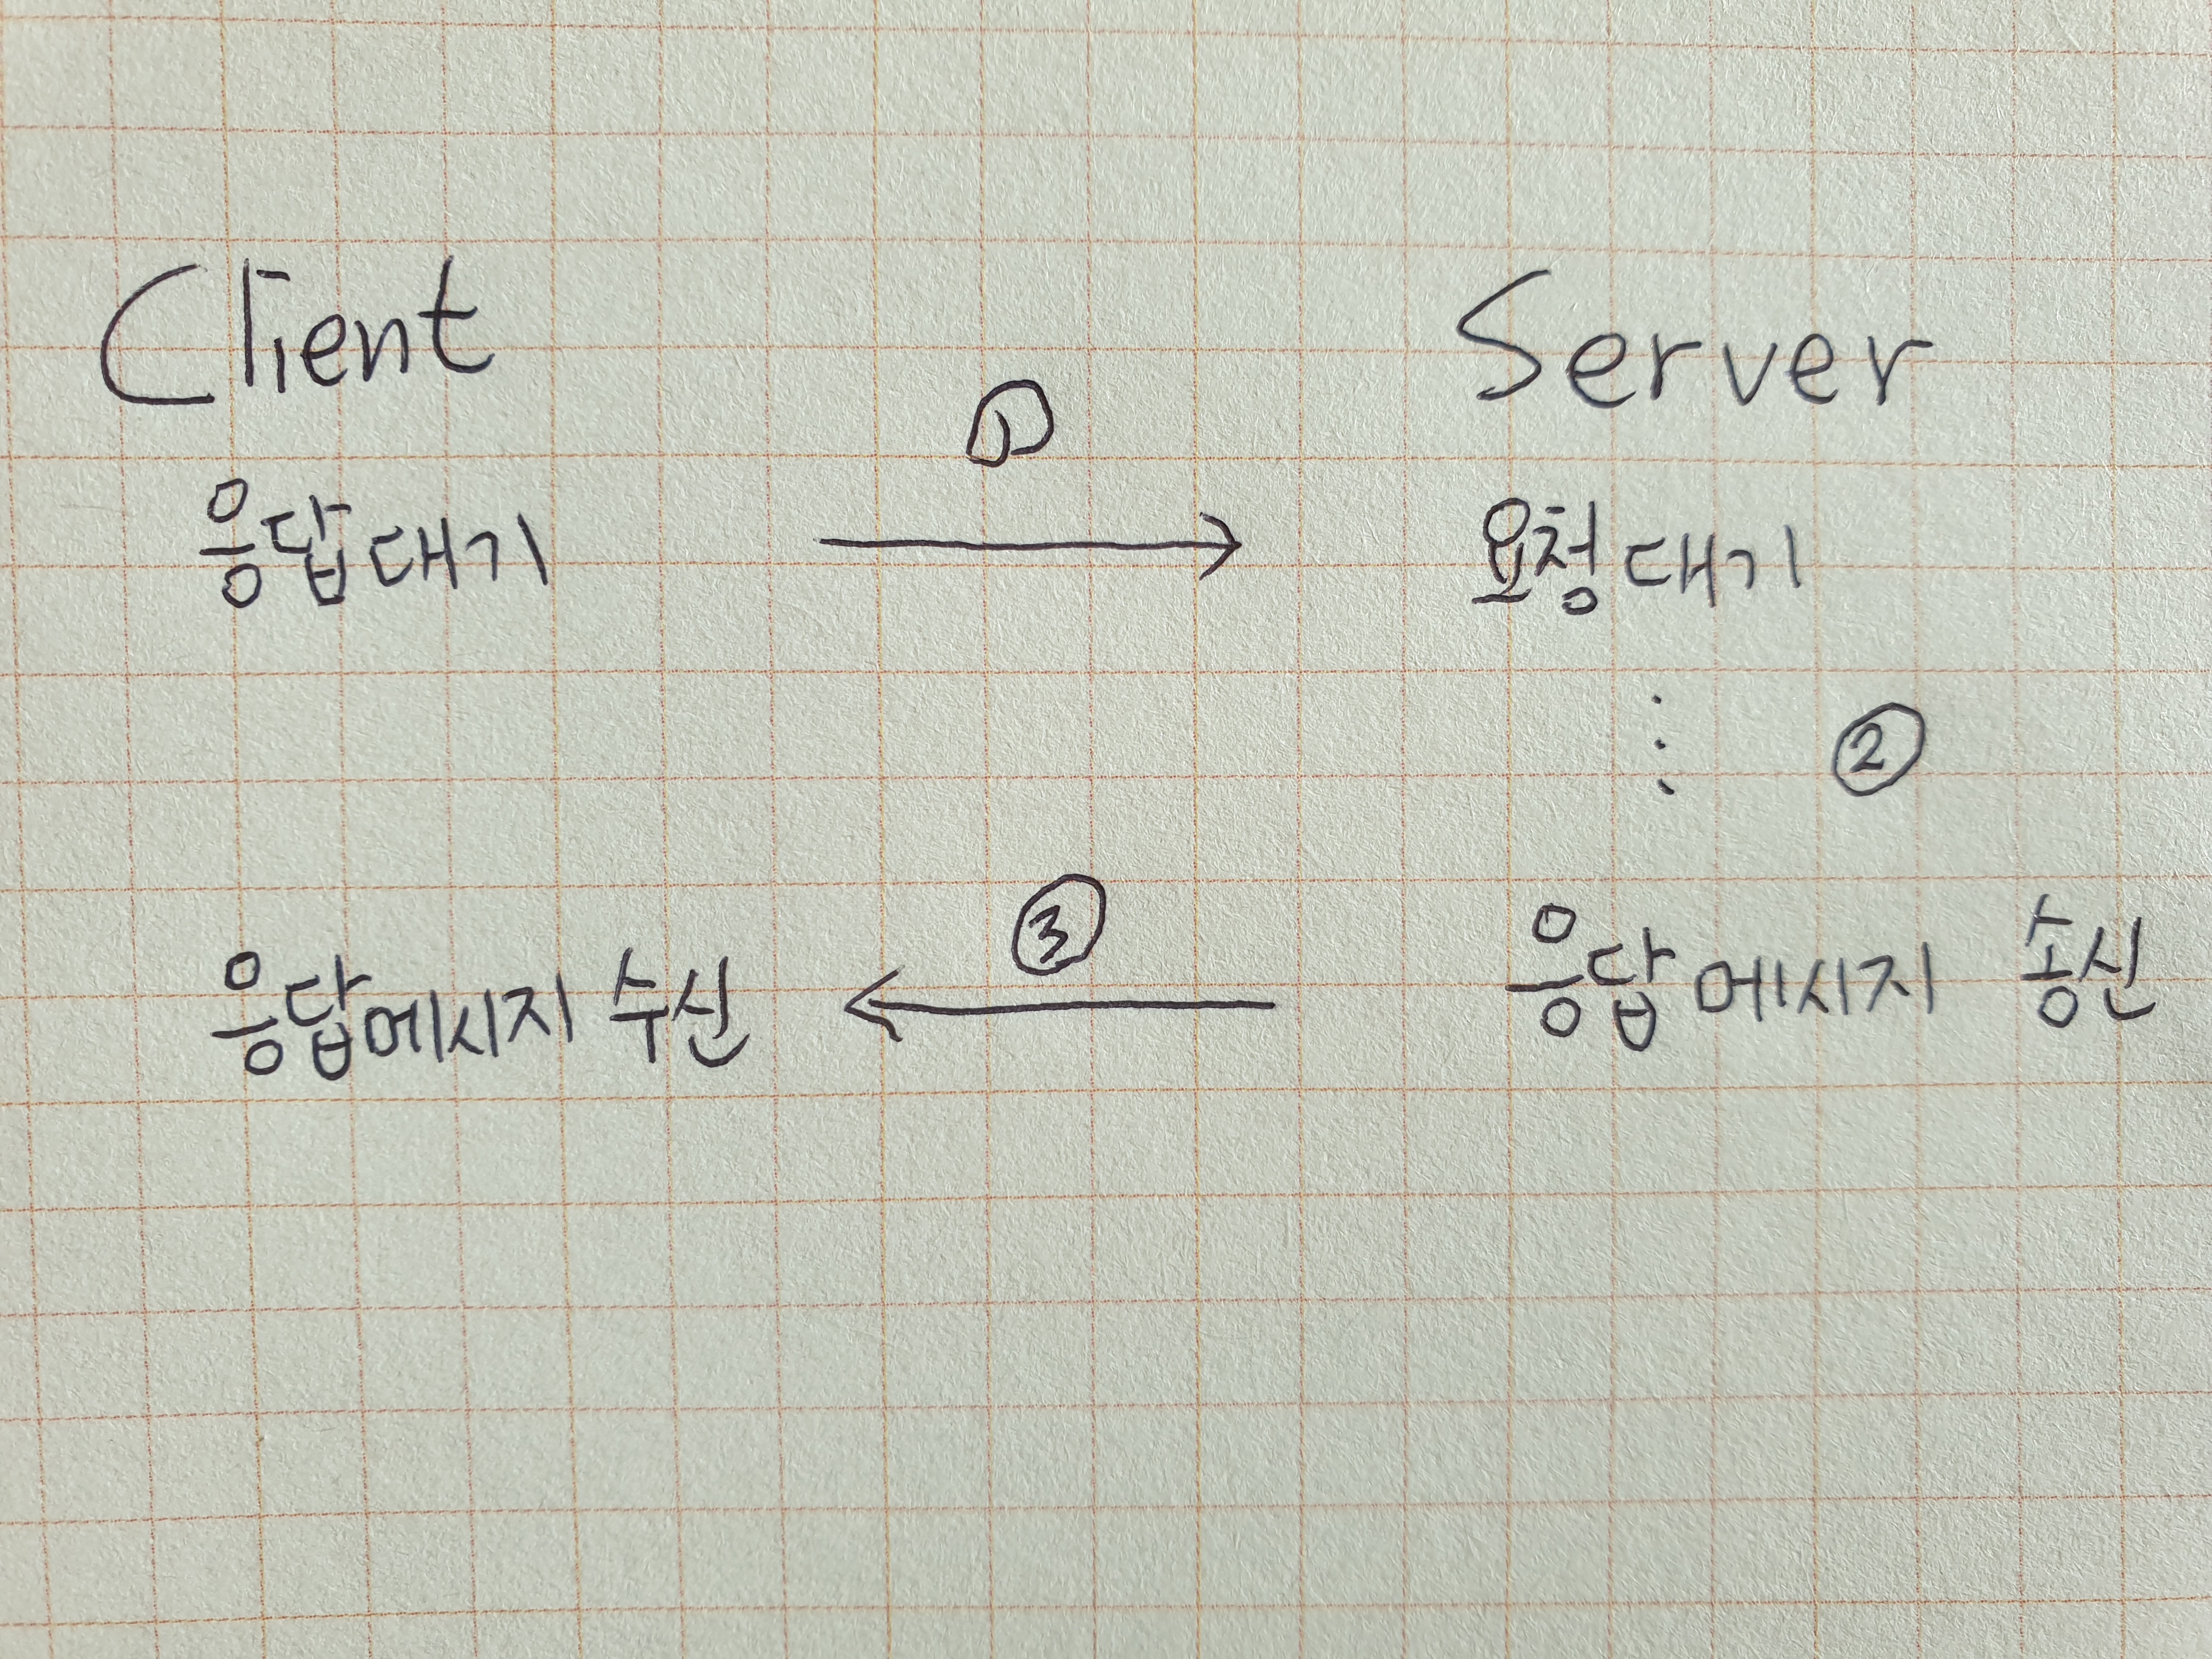 Client Server
①
응답대기 요청대기
②
③
응답메시지 수신 응답메시지 송신